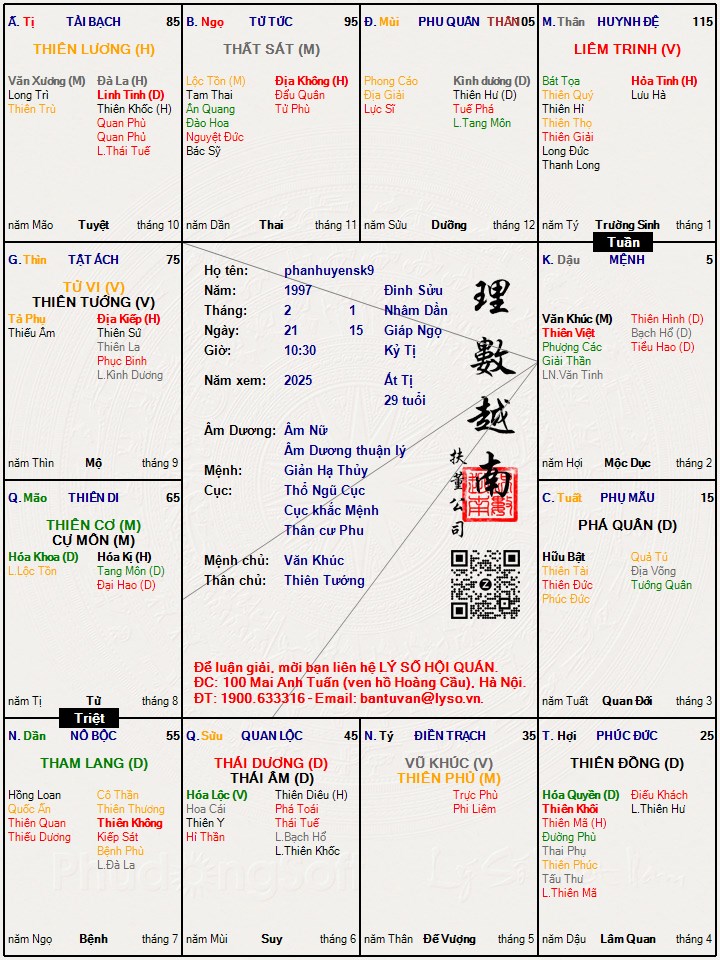 Ấ. Tị TÀI BẠCH 85
THIÊN LƯƠNG (H)
Văn Xương (M) Đà La (H)
Long Trì Linh Tinh (D)
Thiên Trù Thiên Khốc (H)
Quan Phù
Quan Phủ
L.Thái Tuế
năm Mão Tuyệt tháng 10
B. Ngọ TỬ TỨC 95
THẤT SÁT (M)
Lộc Tồn (M) Địa Không (H)
Tam Thai Đẩu Quân
Ân Quang Tử Phù
Đào Hoa
Nguyệt Đức
Bác Sỹ
năm Dần Thai tháng 11
Đ. Mùi PHU QUÂN THÂN 105
Phong Cáo Kình dương (D)
Địa Giải Thiên Hư (D)
Lực Sĩ Tuế Phá
L.Tang Môn
năm Sửu Dưỡng tháng 12
M. Thân HUYNH ĐỆ 115
LIÊM TRINH (V)
Bát Tọa Hỏa Tinh (H)
Thiên Quý Lưu Hà
Thiên Hỉ
Thiên Thọ
Thiên Giải
Long Đức
Thanh Long
năm Tý Trường Sinh tháng 1
Tuần
G. Thìn TẬT ÁCH 75
TỬ VI (V)
THIÊN TƯỚNG (V)
Tả Phụ Địa Kiếp (H)
Thiếu Âm Thiên Sứ
Thiên La
Phục Binh
L.Kình Dương
năm Thìn Mộ tháng 9
Họ tên: phanhuyensk9
Năm: 1997 Đinh Sửu
Tháng: 2 1 Nhâm Dần
Ngày: 21 15 Giáp Ngọ
Giờ: 10:30 Kỷ Tị
Năm xem: 2025 Ất Tị
29 tuổi
Âm Dương: Âm Nữ
Âm Dương thuận lý
Mệnh: Giản Hạ Thủy
Cục: Thổ Ngũ Cục
Cục khắc Mệnh
Thân cư Phu
Mệnh chủ: Văn Khúc
Thân chủ: Thiên Tướng
理數越南
扶董公司
Z
Để luận giải, mời bạn liên hệ LÝ SỐ HỘI QUÁN.
ĐC: 100 Mai Anh Tuấn (ven hồ Hoàng Cầu), Hà Nội.
ĐT: 1900.633316 - Email: bantuvan@lyso.vn.
K. Dậu MỆNH 5
Văn Khúc (M) Thiên Hình (D)
Thiên Việt Bạch Hổ (D)
Phượng Các Tiểu Hao (D)
Giải Thần
LN.Văn Tinh
năm Hợi Mộc Dục tháng 2
Q. Mão THIÊN DI 65
THIÊN CƠ (M)
CỰ MÔN (M)
Hóa Khoa (D) Hóa Kỵ (H)
L.Lộc Tồn Tang Môn (D)
Đại Hao (D)
năm Tị Tử tháng 8
C. Tuất PHỤ MẪU 15
PHÁ QUÂN (D)
Hữu Bật Quả Tú
Thiên Tài Địa Võng
Thiên Đức Tướng Quân
Phúc Đức
năm Tuất Quan Đới tháng 3
Triệt
N. Dần NÔ BỘC 55
THAM LANG (D)
Hồng Loan Cô Thần
Quốc Ấn Thiên Thương
Thiên Quan Thiên Không
Thiếu Dương Kiếp Sát
Bệnh Phù
L.Đà La
năm Ngọ Bệnh tháng 7
Q. Sửu QUAN LỘC 45
THÁI DƯƠNG (D)
THÁI ÂM (D)
Hóa Lộc (V) Thiên Diêu (H)
Hoa Cái Phá Toái
Thiên Y Thái Tuế
Hỉ Thần L.Bạch Hổ
L.Thiên Khốc
năm Mùi Suy tháng 6
N. Tý ĐIỀN TRẠCH 35
VŨ KHÚC (V)
THIÊN PHỦ (M)
Trực Phù
Phi Liêm
năm Thân Đế Vượng tháng 5
T. Hợi PHÚC ĐỨC 25
THIÊN ĐỒNG (D)
Hóa Quyền (D) Điếu Khách
Thiên Khôi L.Thiên Hư
Thiên Mã (H)
Đường Phù
Thai Phụ
Thiên Phúc
Tấu Thư
L.Thiên Mã
năm Dậu Lâm Quan tháng 4